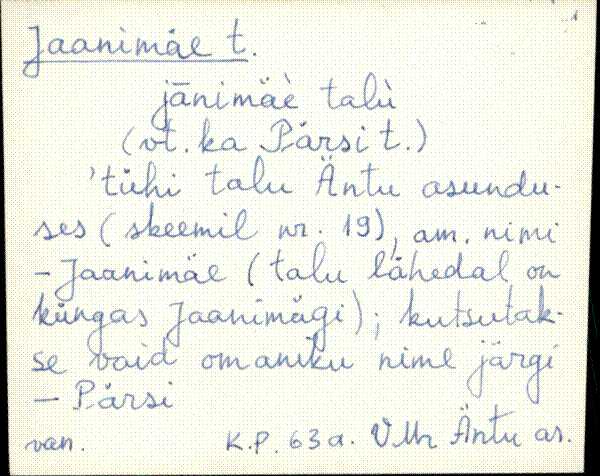 Jaanimäe t.
jānimäè talù
(vt. ka Pärsi t.)
'tühi talu Äntu asundu-
ses (skeemil nr. 19), am. nimi
- Jaanimäe (talu lähedal on
küngas Jaanimägi); kutsutak-
se vaid omaniku nime järgi
- Pärsi
van. K.P. 63a. VMr Äntu as.